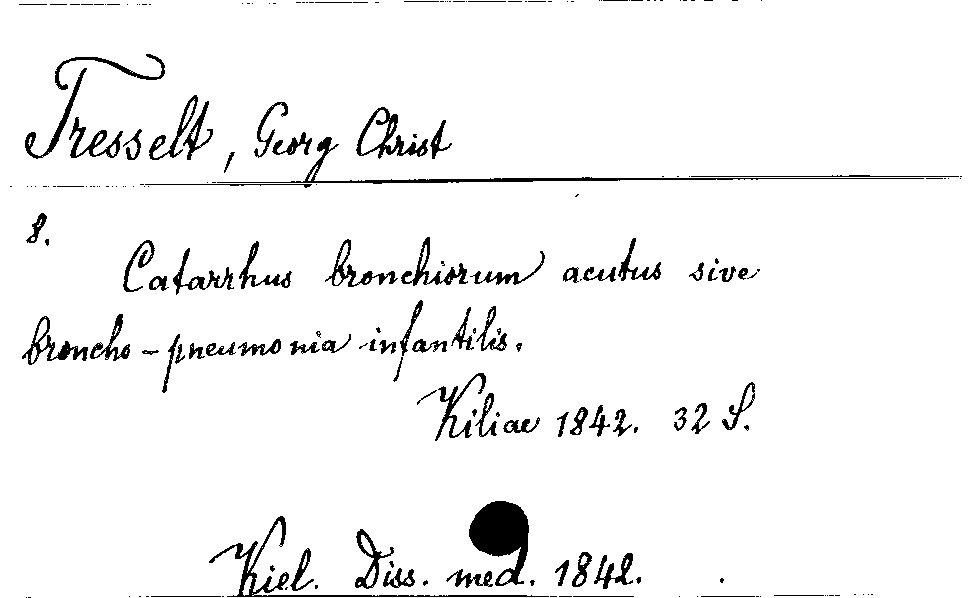 Tresselt, Georg Christ
8.
Catarrhus bronchiorum acutus sive
broncho-pneumonia infantilis.
Kiliae 1842. 32 S.
Kiel. Diss. med. 1842.